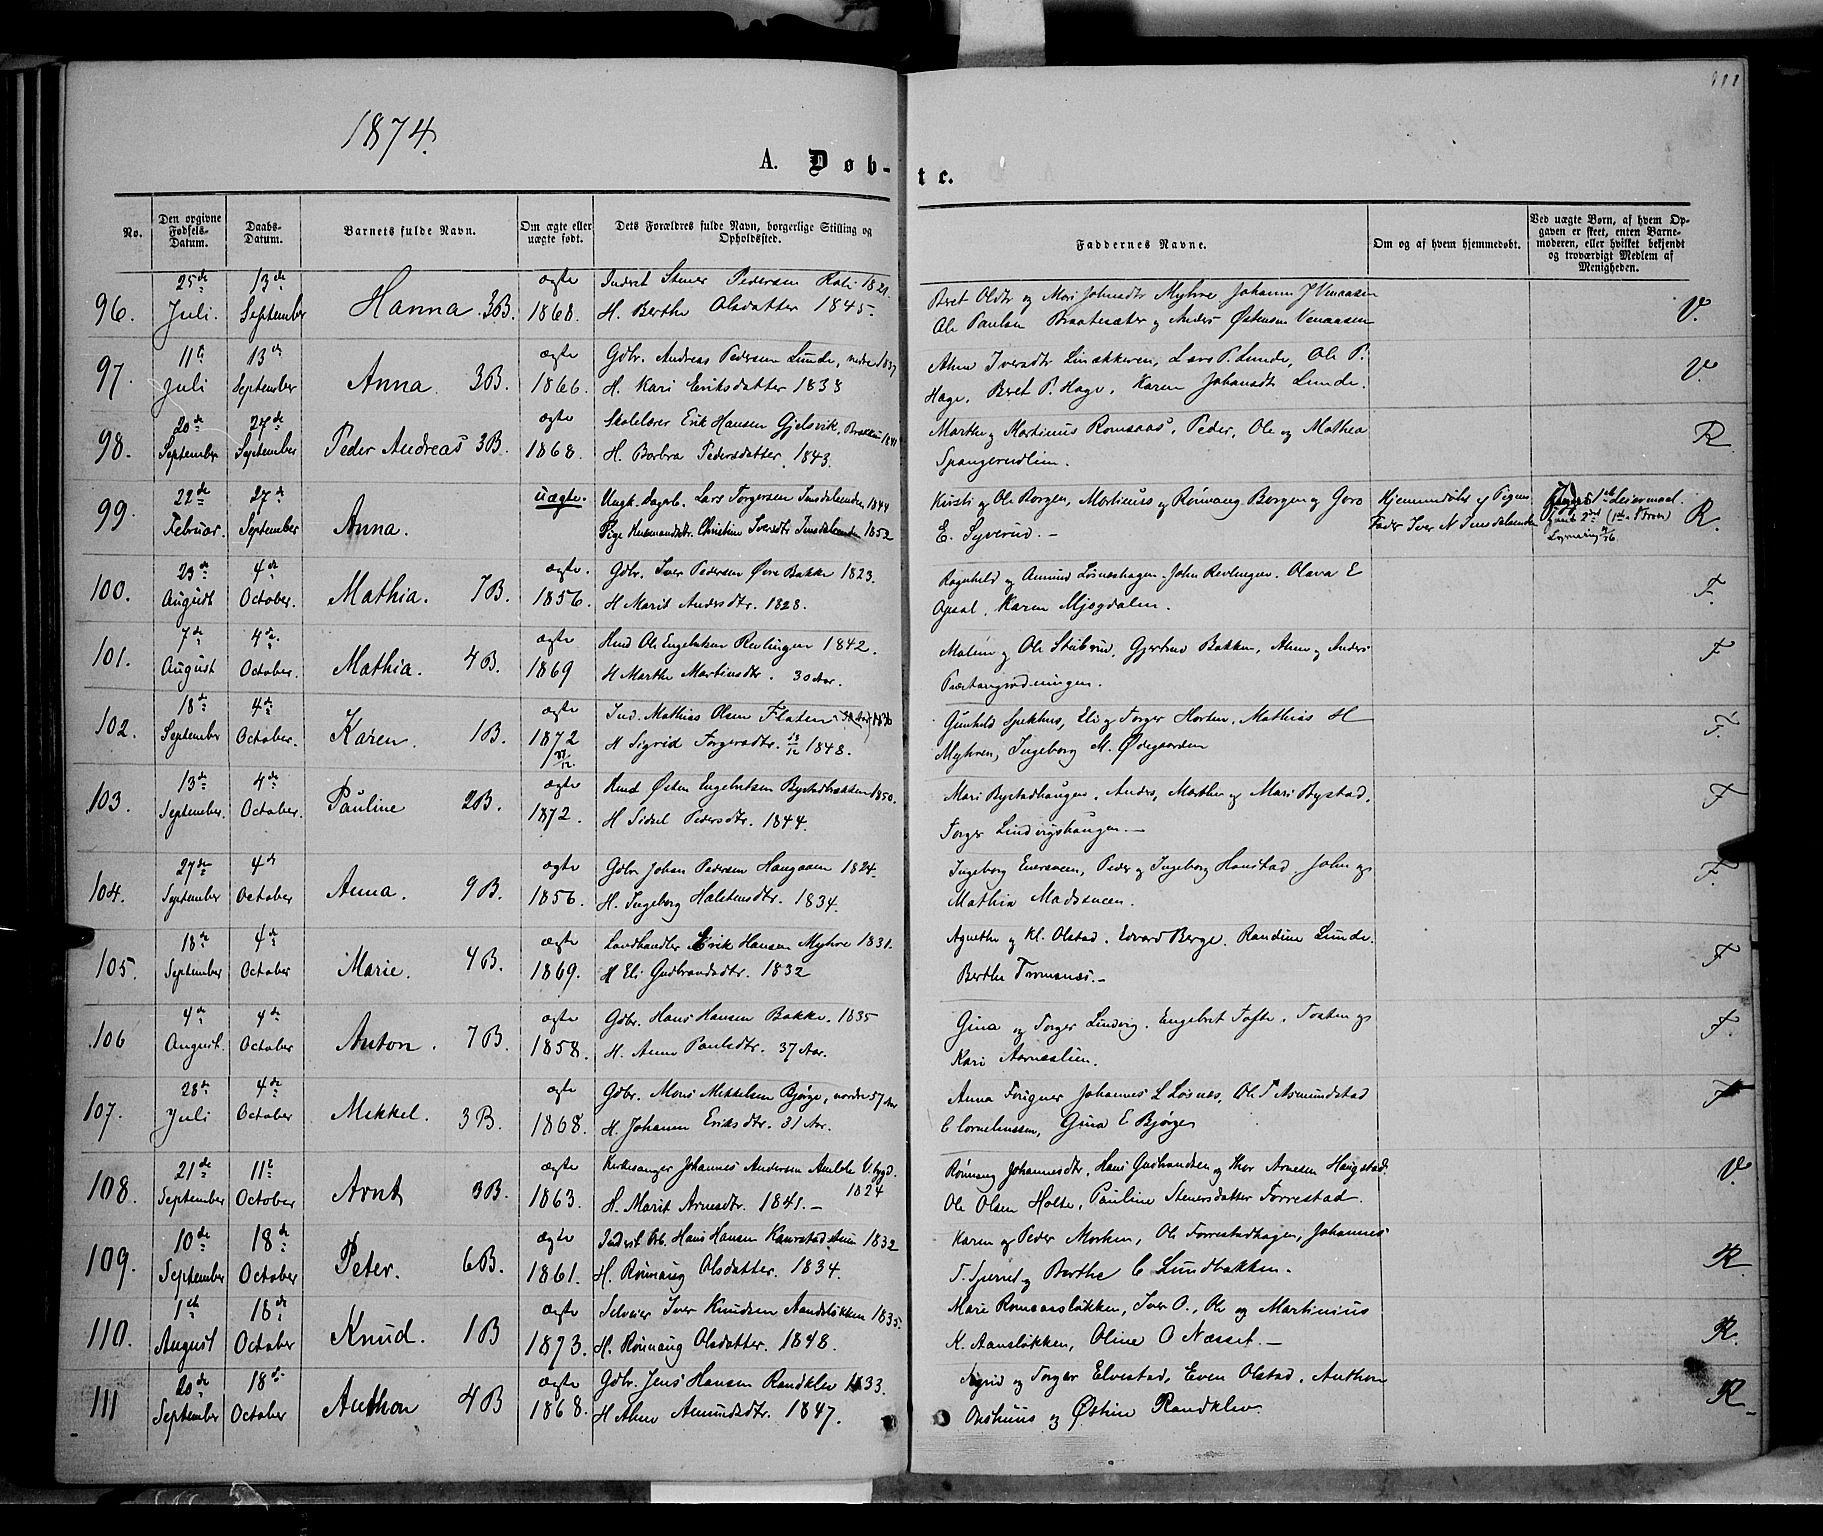 111
1874.
A. Døb-
te.
No.
Den opgivne Fødsels-Datum.
Daabs-Datum.
Barnets fulde Navn.
Om ægte eller uægte født.
Dets Forældres fulde Navn, borgerlige Stilling og Opholdssted.
Faddernes Navne.
Om og af hvem hjemmedøbt.
Ved uægte Børn, af hvem Opgaven er skeet, enten Barnemoderen, eller hvilket bekjendt og troværdigt Medlem af Menigheden.
96. 25de Juli. 13de September Hanna 3B. ægte 1868. Inderst Stener Pedersen 1821.
H. Berthe Olsdatter 1845.
Beret Olsdtr og Mari Johnsdtr Myhre Johannes J Venaasen
Ole Paulsen Braatesæter og Anders Østensen Venaasen
V.
97. 11te Juli 13de September Anna. 3B. ægte 1866. Gdbr. Andreas Pedersen Lunde, nedre 1837
H. Kari Eriksdatter 1838
Ahne Iversdtr Linækkeren, Lars P. Lunde, Ole P.
Hage, Beret P. Hage, Karen Johansdtr Lunde.
V.
98. 20de September 27de September Peder Andreas 3B. ægte 1868. Skolelærer Erik Hansen Gjelsvik, 1841
H. Barbra Pedersdatter 1843.
Marthe og Martinus Romsaas, Peder, Ole og Mathea
Spangrudlien.
R
99. 22de Februar. 27de September Anna. uægte. Ungk. Dagarb. Lars Torgersen Imsdalenden 1844
Pige Husmandsdtr. Christine Iversdtr Imsdalenden 1852
Kirsti og Ole Borgen, Martinus og Rønnaug Borgen og Goro
E. Syverud. -
Hjemmedøbt af Pigens
Fader Iver N Imsdalenden
1ste Leiermaal.
R.
100. 23de August 4de October. Mathia. 7B. ægte. 1856. Gdbr. Iver Pedersen Øvre Bakke 1823.
H Marit Andersdtr. 1828.
Ragnhild og Amund Løsneshagen. John Revlingen. Olava E
Opsal. Karen Mjogdalen.
F.
101. 7de August 4de October. Mathia. 4B. ægte 1869 Hmd Ole Engebretsen Revlingen 1842.
H Marthe Martinsdtr. 30 Aar.
Malene og Ole Stubrud, Gjertrud Bakken, Ahne og Anders
Præstangrødningen.
F
102. 18de September 4de October. Karen. 1B. ægte 1872 Ind. Mathias Olsen Flaten 1836
H Sigrid Torgersdtr. 13/12 1848.
Gunhild Spekhus, Eli og Torger Horten, Mathias H
Myhren, Ingeborg M. Ødegaarden
F.
103. 13de September. 4de October. Pauline 2B. ægte 1872. Hmd Østen Engebretsen Bystadbakken 1850.
H Sidsel Pedersdtr. 1844.
Mari Bystadhaugen, Anders, Marthe og Mari Bystad,
Torger Lindvigshaugen. -
F
104. 27de September 4de October Anna. 9B. ægte 1856. Gdbr Johan Pedersen Haugaan 1824.
H. Ingeborg Halstensdtr. 1834.
Ingeborg Enersveen, Peder og Ingeborg Hanstad, John og
Mathia Madssveen.
F.
105. 18de September 4de October Marie. 4B. ægte 1869. Landhandler Erik Hansen Myhre 1831.
H Eli Gudbrandsdtr. 1832
Agnethe og Kl. Olstad. Edvard Berge. Randine Lunde.
Berthe Tromsnæs. -
F
106 4de August. 4de October Anton. 7B. ægte 1858. Gdbr. Hans Hansen Bakke. 1835
H. Anne Paulsdtr. 37 Aar.
Gina og Torger Lindvig. Engebret Tofte. Tosten og
Kari Aarneslien.
F.
107. 28de Juli 4de October Mikkel. 3B. ægte 1868. Gdbr. Mons Mikkelsen Bjørge, nordre 57 Aar
H. Johanne Eriksdtr. 31 Aar.
Anna Forigner Johannes L Løsnæs, Ole T Asmundstad
C Corneliussen, Gina E Bjørge
F
108. 21de September 11te October Arnt 3B. ægte 1863. Kirkesanger Johannes Andersen Amble V. bygd.
H. Marit Arnesdtr. 1841. - 1824
Rønnaug Johannesdtr, Hans Gudbrandsen og Thor Arnesen Haugstad
Ole Olsen Holte, Pauline Stenersdatter Forrestad.
V.
109. 10de September 18de October Peter. 6B. ægte 1861. Inderst Arb. Hans Hansen 1832
H. Rønnaug Olsdatter. 1834.
Karen og Peder Morken, Ole Forrestadhagen, Johannes
T. og Berthe C Lundbakken.
R.
110. 1ste August 18de October Knud. 1B ægte 1873. Selveier Iver Knudsen Aandsløkken 1835.
H. Rønnaug Olsdatter. 1848.
Mari Romsaasløkken, Iver O., Ole og Martinius
K. Aansløkken, Oline O Næsset. -
R.
111 20de September 18de October Anthon 4B ægte 1868. Gdbr. Jens Hansen Randklev 1833.
H Ahne Amundsdtr. 1847.
Sigrid og Torger Elvestad, Even Olstad, Anthon
Onshuus og Østine Randklev.
R